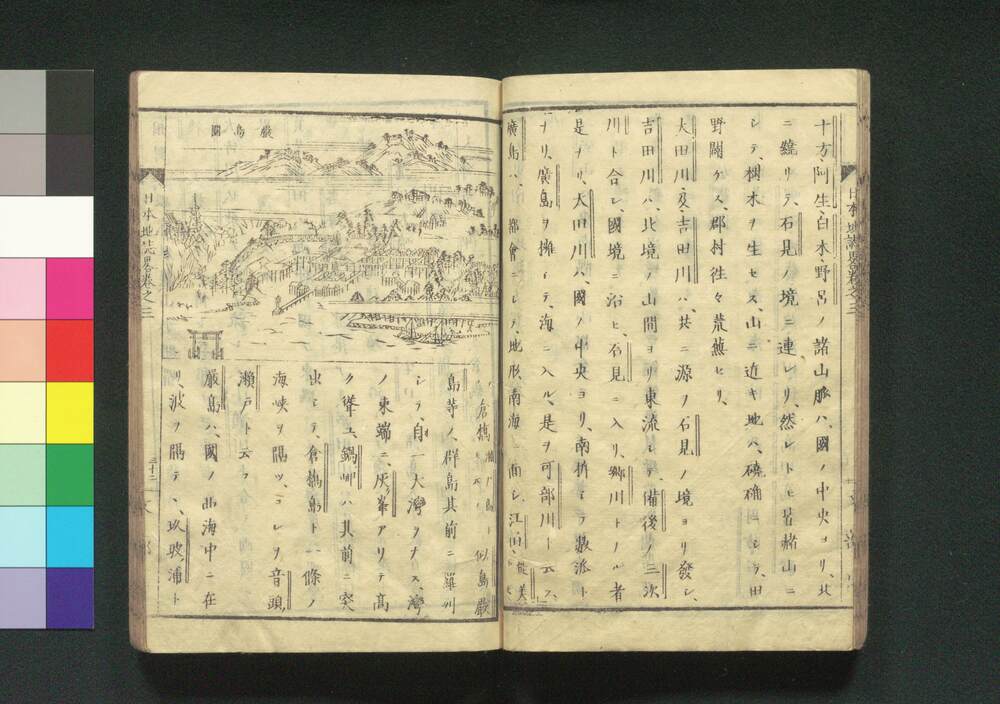 十方、阿生、白木、野呂ノ諸山脈ハ、國ノ中央ヨリ、北
ニ繞リテ、石見ノ境ニ連レリ、然レトモ岩赭山ニ
シテ、樹木ヲ生セス、山ニ近キ地ハ、磽确ニシテ、田
野闢ケス、郡村往々荒蕪セリ、
大田川及吉田川ハ、共ニ源ノ石見ノ境ヨリ發シ、
吉田川ハ、北境ノ山間ヨリ東流シテ、備後ノ三次
川ト合シ國境ニ沿ヒ、石見ニ入リ、郷川トナル者
是ナリ、大田川ハ、國ノ中央ヨリ、南折シテ數派ト
ナリ、廣島ヲ擁シテ、海ニ入ル、是ヲ可部川ト云フ、
廣島ハ、都會ニシテ、地形南海ニ面シ、江田、能美
倉橋 似島嚴
島等ノ、群島其前ニ羅列
シテ、自一大灣ヲナス、灣
ノ東端ニ灰峯アリテ高
ク聳ユ、鍋岬ハ其前ニ突
出シテ、倉橋島ト一條ノ
海峡ヲ隔ツ、コレヲ音頭
瀬戸ト云フ
嚴島ハ、國ノ西海中ニ在
リ、波ヲ隔テヽ、玖波浦ト
嚴島圖
日本地誌略卷之三
日本地誌略卷之三
三十二